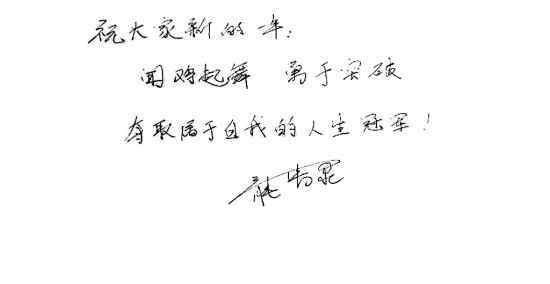 祝大家新的一年：
闻鸡起舞 勇于突破
夺取属于自我的人生冠军！
龙清泉